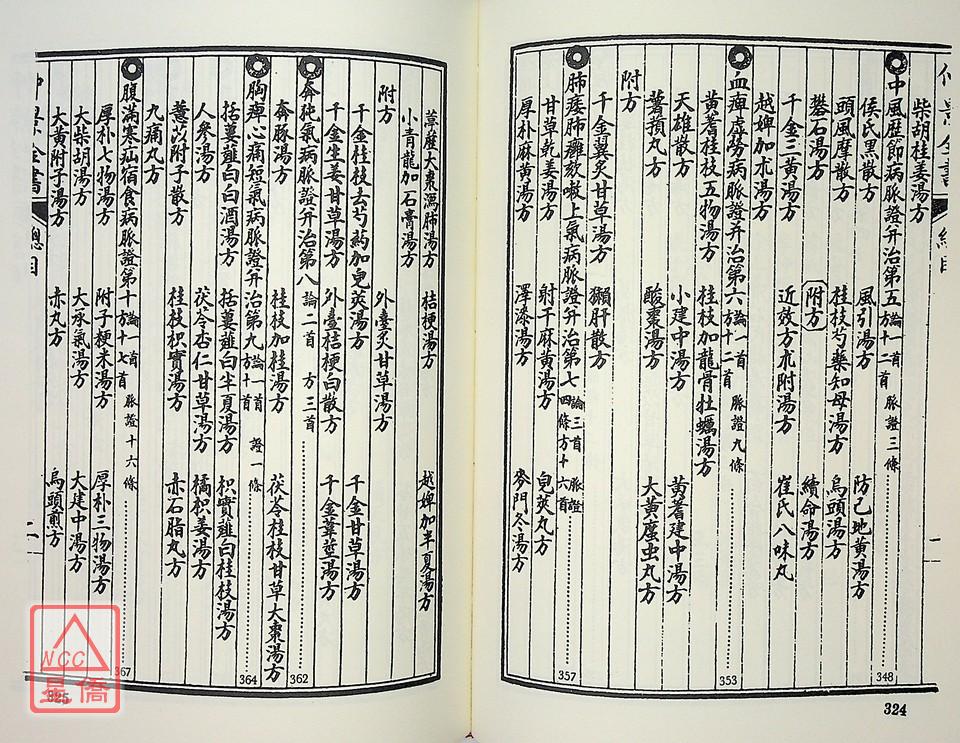 柴胡桂姜湯方
中風歷節病脈證并治第五 論一首 方十二首 脈證三條 348
侯氏黑散方 風引湯方 防己地黃湯方
頭風摩散方 桂枝芍藥知母湯方 烏頭湯方
礬石湯方 附方 續命湯方
千金三黃湯方 近效方朮附湯方 崔氏八味丸
越婢加朮湯方
血痺虛勞病脈證并治第六 論一首 方十二首 脈證九條 353
黃蓍桂枝五物湯方 桂枝加龍骨牡蠣湯方
天雄散方 小建中湯方 黃蓍建中湯方
薯蕷丸方 酸棗湯方 大黃䗪虫丸方
附方
千金翼炙甘草湯方 獺肝散方
肺痿肺癰欬嗽上氣病脈證并治第七 論三首 脈證四條 方十六首 357
甘草乾姜湯方 射干麻黃湯方 皂莢丸方
厚朴麻黃湯方 澤漆湯方 麥門冬湯方
324
葶藶大棗瀉肺湯方 桔梗湯方 越婢加半夏湯方
小青龍加石膏湯方
附方 外臺炙甘草湯方
千金桂枝去芍藥加皂莢湯方 千金甘草湯方
千金生姜甘草湯方 外臺桔梗白散方 千金葦莖湯方
奔㹠氣病脈證并治第八 論二首 方三首 362
奔豚湯方 桂枝加桂湯方 茯苓桂枝甘草大棗湯方
胸痺心痛短氣病脈證并治第九 論一首 方十首 證一條 364
括蔞薤白白酒湯方 括蔞薤白半夏湯方 枳實薤白桂枝湯方
人參湯方 茯苓杏仁甘草湯方 橘枳姜湯方
薏苡附子散方 桂枝枳實湯方 赤石脂丸方
九痛丸方
腹滿寒疝宿食病脈證第十 論一首 方十七首 脈證十六條 367
厚朴七物湯方 附子粳米湯方 厚朴三物湯方
大柴胡湯方 大承氣湯方 大建中湯方
大黃附子湯方 赤丸方 烏頭煎方
325
NCC
星僑